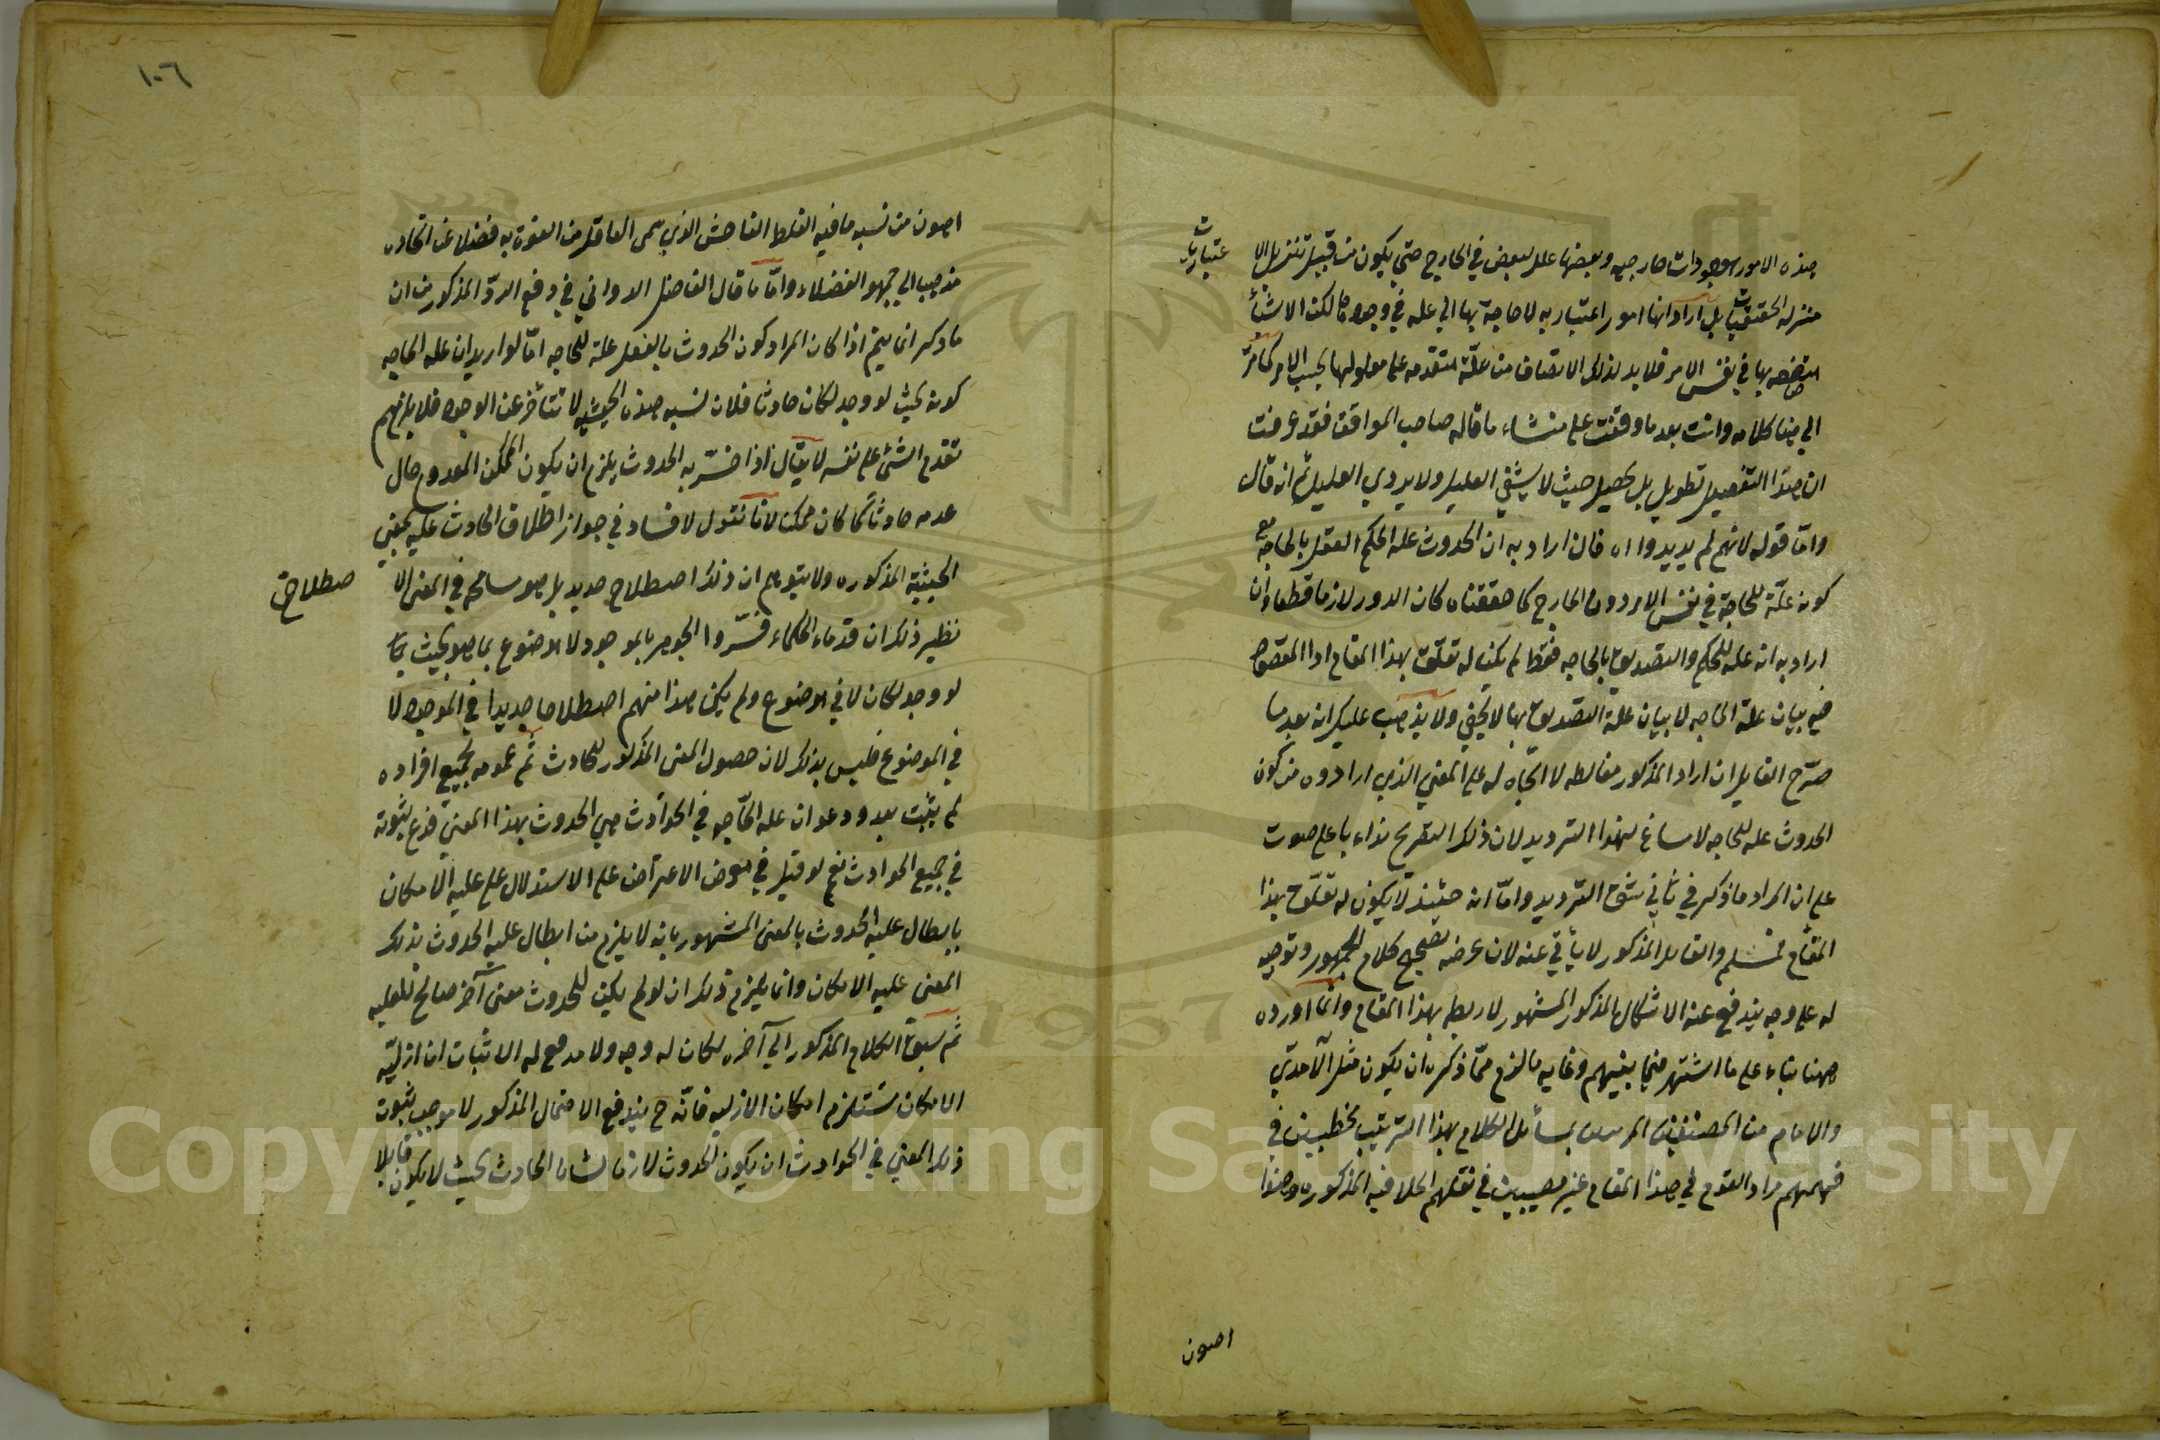 هذه الامور موجودات خارجيه وبعضها علل لبعض في الخارج حتي يكون من قبيل تنزيل الا
عتباريات
منزله الحقيقيات بل ارادانها امور اعتباريه لا حاجة بها الي عله في وجودها لكن الاشيأ
متصفه بها في نفس الامر فلا بد لذلك الاتصاف من علّة متقدمه علي معلولها بحسب الامر كما مرّ
الي هنا كلامه وانت بعد ما وقفت علي منشاء ما قاله صاحب المواقف فقد عرفت
ان هذا التفصيل تطويل بل تحصيل حيث لا يشفي العليل ولا يروي الغليل ثم انه قال
وامّا قوله لانهم لم يريدوا اه فان اراد به ان الحدوث علة الحكم العقل بالحاجه مع
كونه علّة للحاجة في نفس الامر دون الخارج كما حققناه كان الدور لازما قطعا وان
اراد به انه علة للحكم والتصديق بالحاجه فقط لم يكن له تعلّق بهذا المقام اذا المقصود
فيه بيان علة الحاجه لا بيان علة التصديق بها لا يخفي ولا يذهب عليك انه بعد ما
صرّح القايل ان ايراد المذكور مغالطه لا اتّجاه له علي المعني الذي ارادوه من كون
الحدوث عله للحاجه لا مساغ لهذا الترديد لان ذلك التصريح نداء باعلي صوت
علي ان المراد ما ذكر في ثاني شقي الترديد وامّا انه حينئذ لا يكون له تعلّق بهذا
المقام فمسلم والقايل المذكور لا يأبي عنه لان غرضه تصحيح كلام الجمهور وتوجيه
له علي وجه يندفع عنه الاشكال المذكور المشهور لا ربطه بهذا المقام وانما اورده
ههنا بناء علي ما اشتهر فيما بينهم وغايه ما لزم ممّا ذكره ان يكون مثل الآمدّي
والامام من المصنفين مسائل الكلام بهذا الترتيب مخطيين في
فهمهم مراد القوم في هذا المقام غير مصيبين في نقلهم الخلافيه المذكوره وهذا
اهون
١٠٦
اهون من نسبه ما فيه الغلط الفاحش الذي العاقل من التفوة به فضلا عن اتخاذه
مذهب الي جمهور الفضلاء وامّا ما قال الفاضل الدواني في دفع الردّ المذكور من ان
ما ذكر انما يتم اذا كان المراد كون الحدوث بالفعل علة للحاجه امّا لو اريد ان علة الحاجه
كونه بحيث لو وجد لكان حادثا فلان نسبه هذه الحيثيه لا تتأخر عن الوجود فلا يلزم
تقدم الشئ علي نفسه لا يقال اذا فسّر به الحدوث يلزم ان يكون الممكن المعدوم حال
عدمه حادثا كما كان ممكنا لانا نقول لا فساد في جواز اطلاق الحادث عليه بمعني
الحيثية المذكوره ولا يتوهم ان ذلك اصطلاح جديد بل هو سامحه في المعني الا
صطلاحي
نظير ذلك ان قدماء الحكماء فسّروا الجوهر بالموجود لا موضوع بما هو بحيث
لو وجد لكان لا في موضوع ولم يكن هذا منهم اصطلاحا جديدا في الموجود لا
في الموضوع فليس بذلك لان حصول المعني المذكور للحادث ثم عمومه لجميع افراده
لم يثبت بعد ودعوا ان علة الحاجه في الحوادث هي الحدوث بهذا المعني فرع ثبوته
في جميع الحوادث نعم لو قيل في معرض الاعتراض علي الاستدلال علي عليه الامكان
بابطال عليه الحدوث بالمعني المشهور بانه لا يلزم من ابطال عليه الحدوث بذلك
المعني عليه الامكان وانما يلزم ذلك ان لو لم يكن للحدوث معني آخر صالح للعليه
ثم سبق الكلام المذكور الي آخره لكان له وجه ولا مدفع له الا اثبات ان ازليّه
الامكان تستلزم امكان الازليه فانّه ح يندفع الاحتمال المذكور لا موجب ثبوت
ذلك المعني في الحوادث ان يكون الحدوث لازما لشان الحادث بحيث لا يكون قابلا